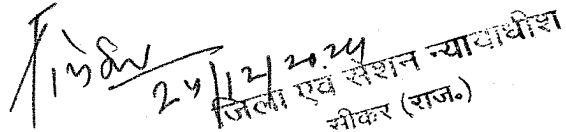 24/12/2024
जिला एवं सेशन न्यायाधीश
सीकर (राज०)